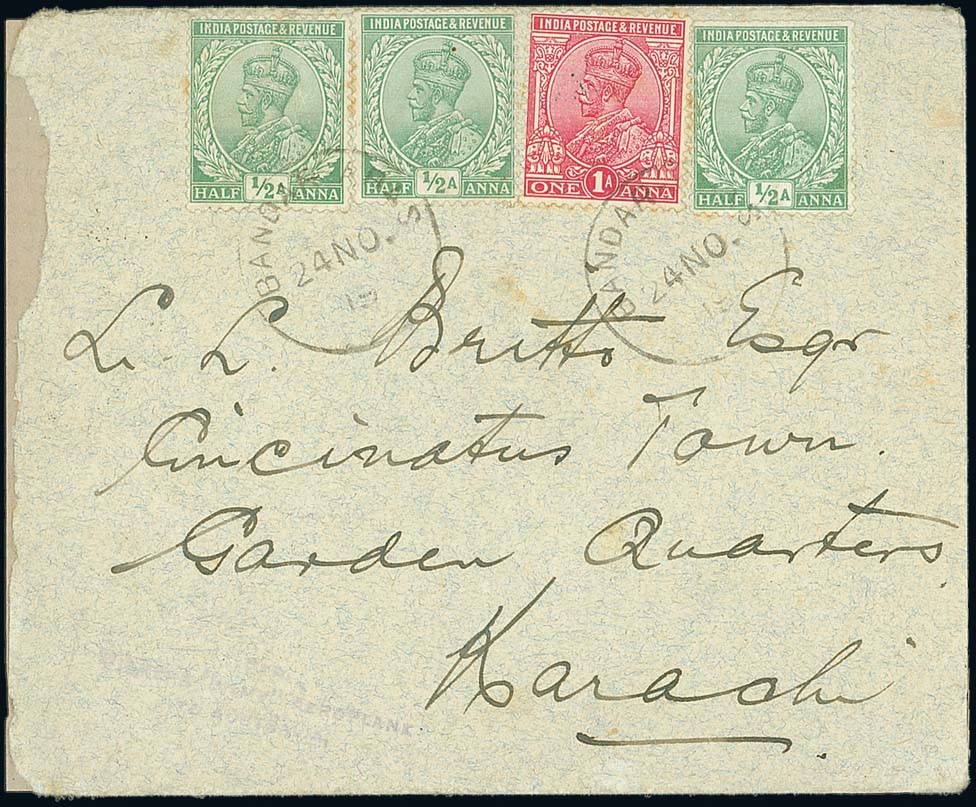 INDIA POSTAGE & REVENUE
HALF ½A ANNA
INDIA POSTAGE & REVENUE
HALF ½A ANNA
INDIA POSTAGE & REVENUE
ONE 1A ANNA
INDIA POSTAGE & REVENUE
HALF ½A ANNA
24 NO.
24 NO.
L. L. Britto Esqr
Cincinatus Town.
Garden Quarters
Karachi
AEROPLANE